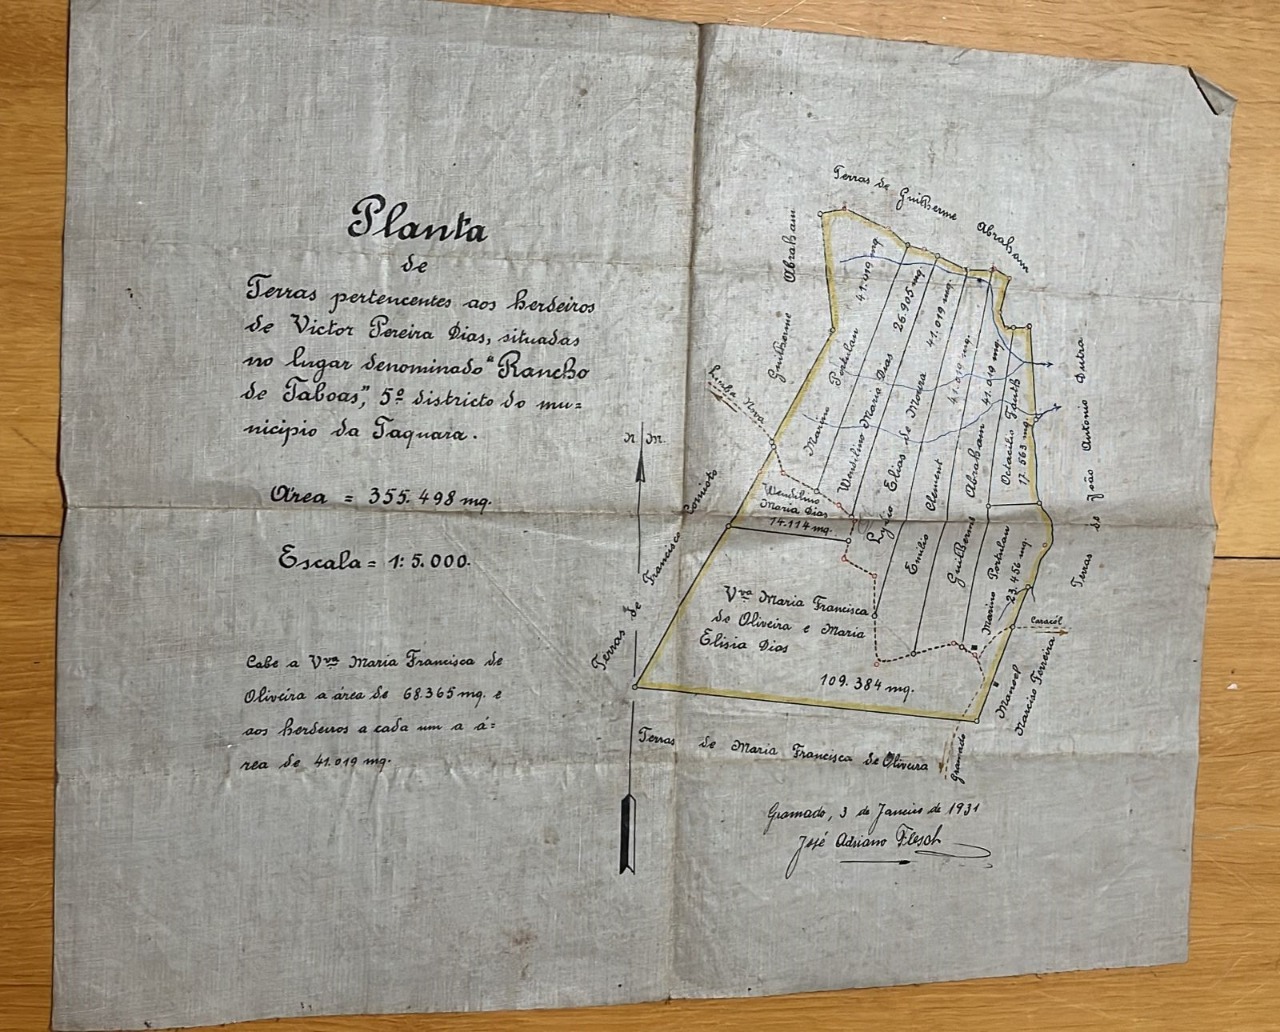 Planta
de
Terras pertencentes aos herdeiros
de Victor Pereira Dias, situadas
no lugar denominado "Rancho
de Taboas", 5º districto do mu=
nicipio da Taquara.
Area = 355.498 mq.
Escala = 1: 5.000.
Cabe a Vva Maria Francisca de
Oliveira a área de 68.365 mq. e
aos herdeiros a cada um a á=
rea de 41.019 mq.
N M.
Terras de Guilherme Abraham
Guilherme Abraham
Linha Nova
Terras de Francisco
Marino Portulan 41.019 mq.
Wendilino Maria Dias 26.905 mq.
Lydio Elias de Moura 41.019 mq.
Emilio Clement 41.019 mq.
Guilherme Abraham 41.019 mq.
Octacilio Fauth 17.563 mq.
Marino Portulan 23.456 mq.
Wendilino
Maria Dias
14.114 mq.
Vva Maria Francisca
de Oliveira e Maria
Elisia Dias
109.384 mq.
Terras de João Antonio Dutra
Caracól
Manoel
Narciso Ferreira
Gramado
Terras de Maria Francisca de Oliveira
Gramado, 3 de Janeiro de 1931
José Adriano Flesch